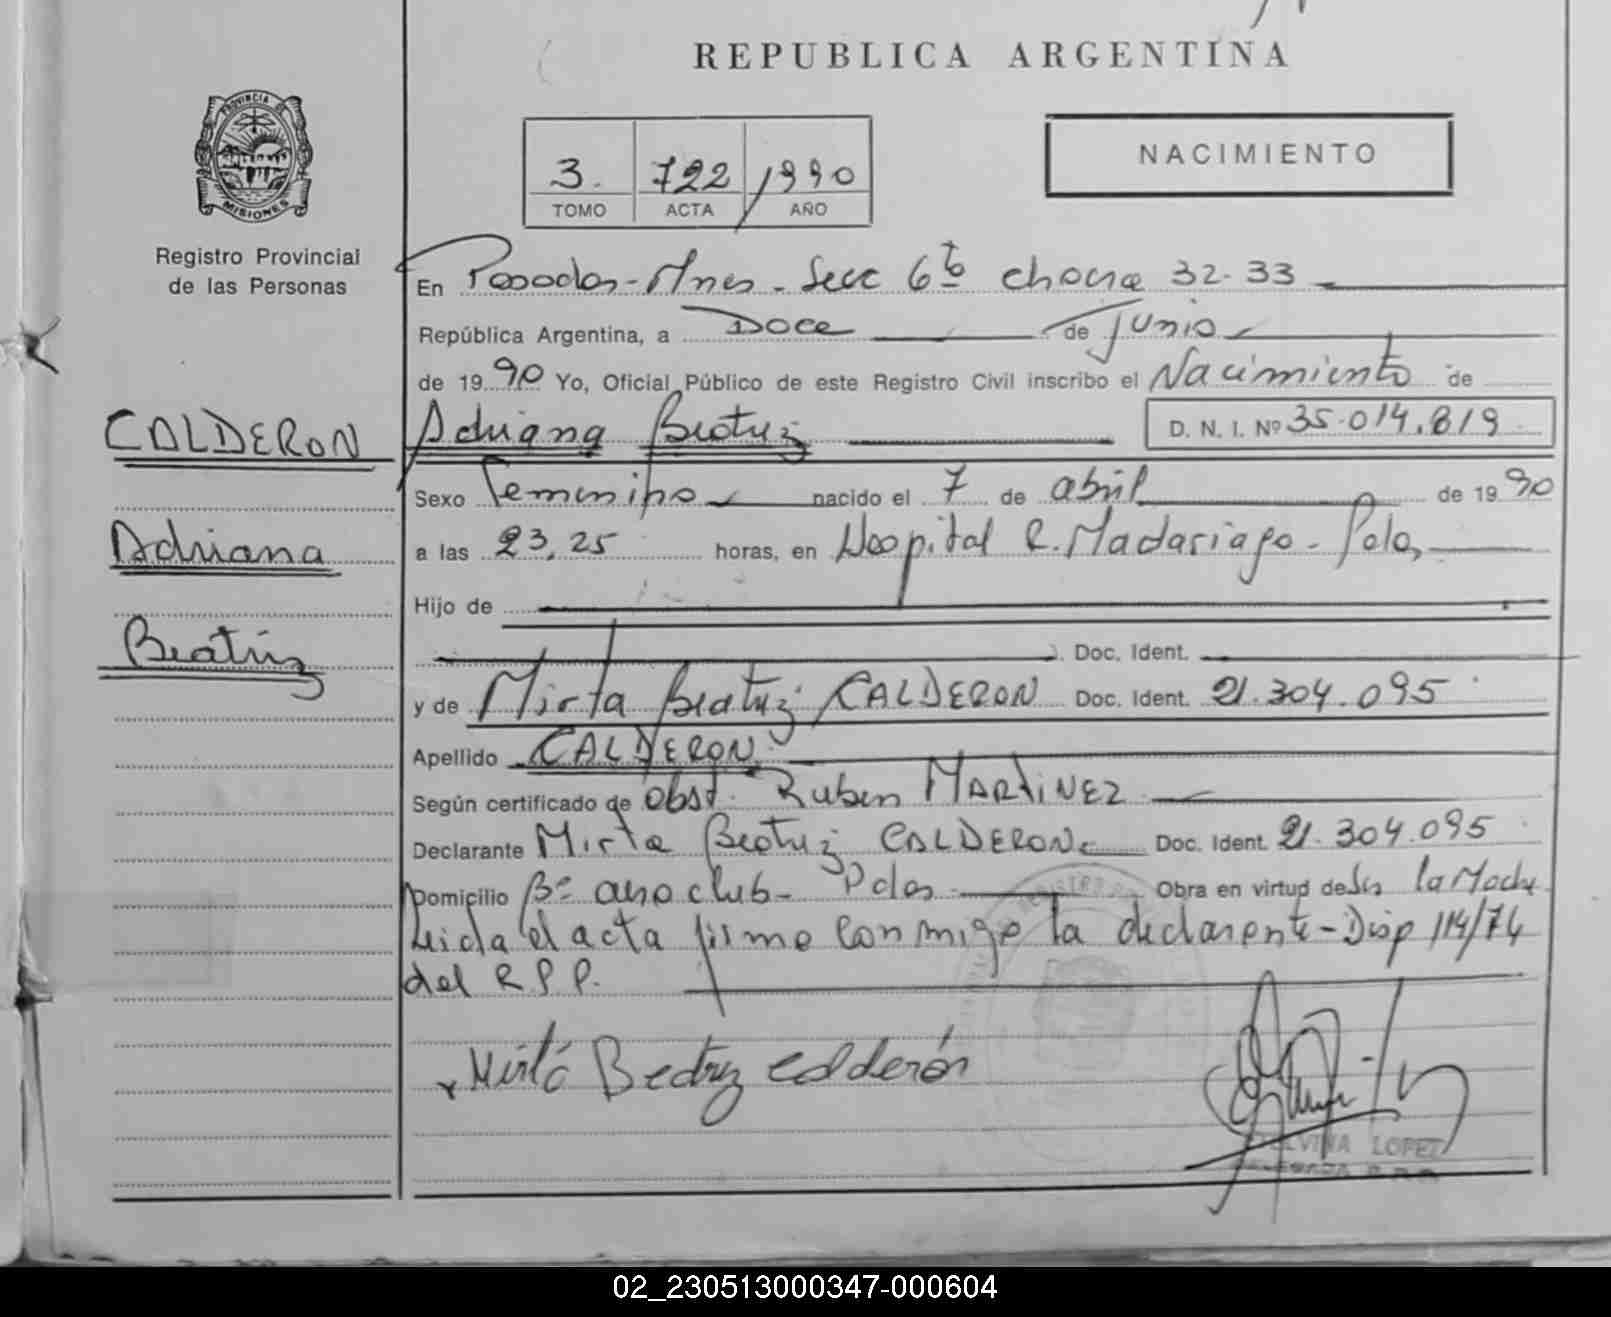 REPUBLICA ARGENTINA
PROVINCIA DE
MISIONES
Registro Provincial
de las Personas
3. 722 1990
TOMO ACTA AÑO
NACIMIENTO
En Posadas-Mnes. Secc 6ta chacra 32-33
República Argentina, a Doce de Junio
de 1990 Yo, Oficial Público de este Registro Civil inscribo el Nacimiento de
CALDERON Adriana Beatriz D. N. I. Nº 35.014.819
Sexo Femenino nacido el 7 de abril de 1990
Adriana
a las 23,25 horas, en Hospital R. Madariaga-
Hijo de
Beatriz
Doc. Ident.
y de Mirta Beatriz CALDERON Doc. Ident. 21.304.095
Apellido CALDERON
Según certificado de obst. Ruben MARTINEZ
Declarante Mirta Beatriz CALDERON Doc. Ident. 21.304.095
Domicilio Bº club- Obra en virtud de la Madre
Leida el acta firma conmigo la declarante-Disp 114/74
del R.P.P.
Mirta Beatriz Calderón
LOPEZ
02_230513000347-000604